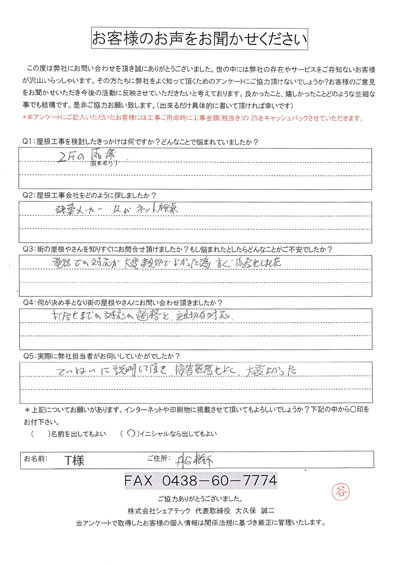 お客様のお声をお聞かせください
この度は弊社にお問い合わせを頂き誠にありがとうございました。世の中には弊社の存在やサービスをご存知ないお客様
が沢山いらっしゃいます。その方たちに弊社をよく知って頂くためのアンケートにご協力頂けないでしょうか?お客様のご意見
をお聞かせいただき今後の活動に反映させていただきたいと考えております。良かったこと、嬉しかったことどのような些細な
事でも結構です。是非ご協力お願い致します。(出来るだけ具体的に書いて頂ければ幸いです)
*本アンケートにご記入いただいたお客様には工事ご用命時に工事金額(税抜き)の2%をキャッシュバックさせていただきます。
Q1:屋根工事を検討したきっかけは何ですか?どんなことで悩まれていましたか?
2Fの
Q2:屋根工事会社をどのように探しましたか?
ネット検索
Q3:街の屋根やさんを知りすぐにお問合せ頂けましたか?もし悩まれたとしたらどんなことがご不安でしたか?
電話での対応が大変親切でよかった為
Q4:何が決め手となり街の屋根やさんにお問い合わせ頂きましたか?
打合せまでの対応の と、親切な対応
Q5:実際に弊社担当者がお伺いしていかがでしたか?
ていねいに説明して頂き 大変よかった
*上記についてお願いがあります。インターネットや印刷物に掲載させて頂いてもよろしいでしょうか?下記の中から○印を
お付下さい。
( )名前を出してもよい (○)イニシャルなら出してもよい
お名前: T様 ご住所: 船橋市
FAX 0438-60-7774
ご協力ありがとうございました。
株式会社シェアテック 代表取締役 大久保 誠二
当アンケートで取得したお客様の個人情報は関係法規に基づき厳正に管理いたします。